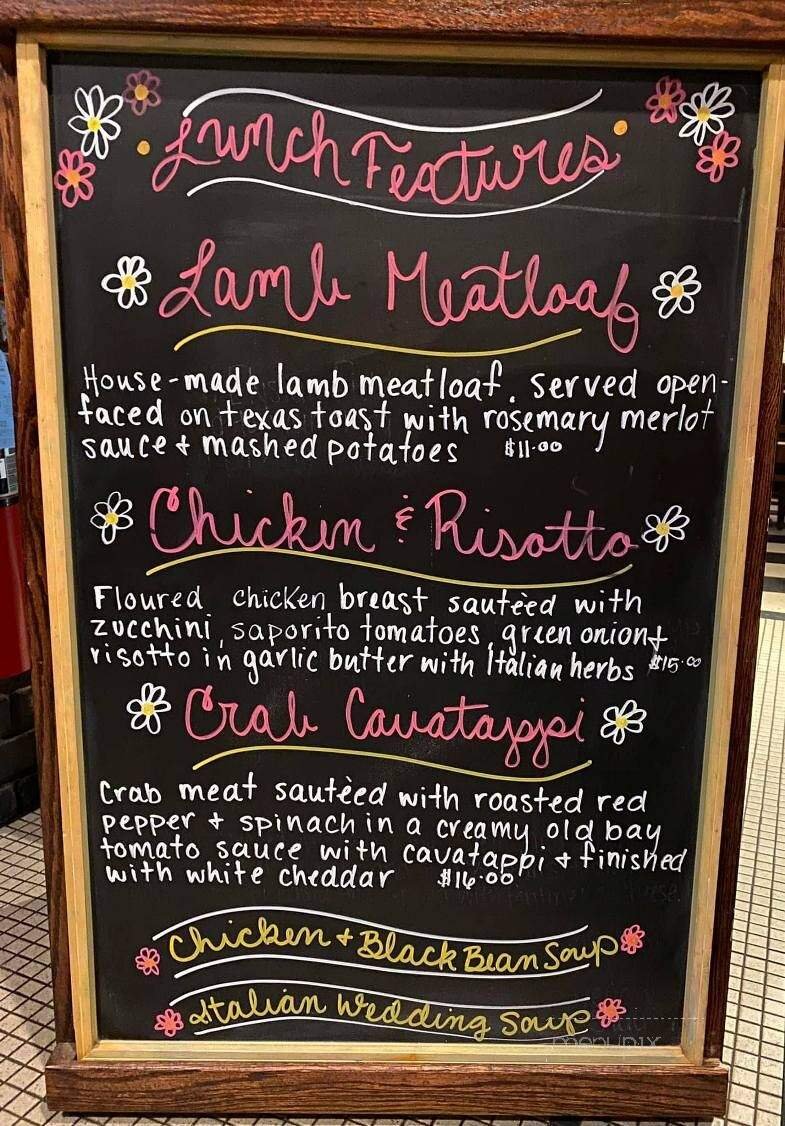 Lunch Features
Lamb Meatloaf
House-made lamb meatloaf. Served open-
faced on texas toast with rosemary merlot
sauce + mashed potatoes $11.00
Chicken & Risotto
Floured chicken breast sautèed with
zucchini, saporito tomatoes, green onion +
risotto in garlic butter with Italian herbs $15.00
Crab Cavatappi
Crab meat sautèed with roasted red
pepper + spinach in a creamy old bay
tomato sauce with cavatappi + finished
with white cheddar $16.00
Chicken + Black Bean Soup
Italian Wedding Soup
menupix